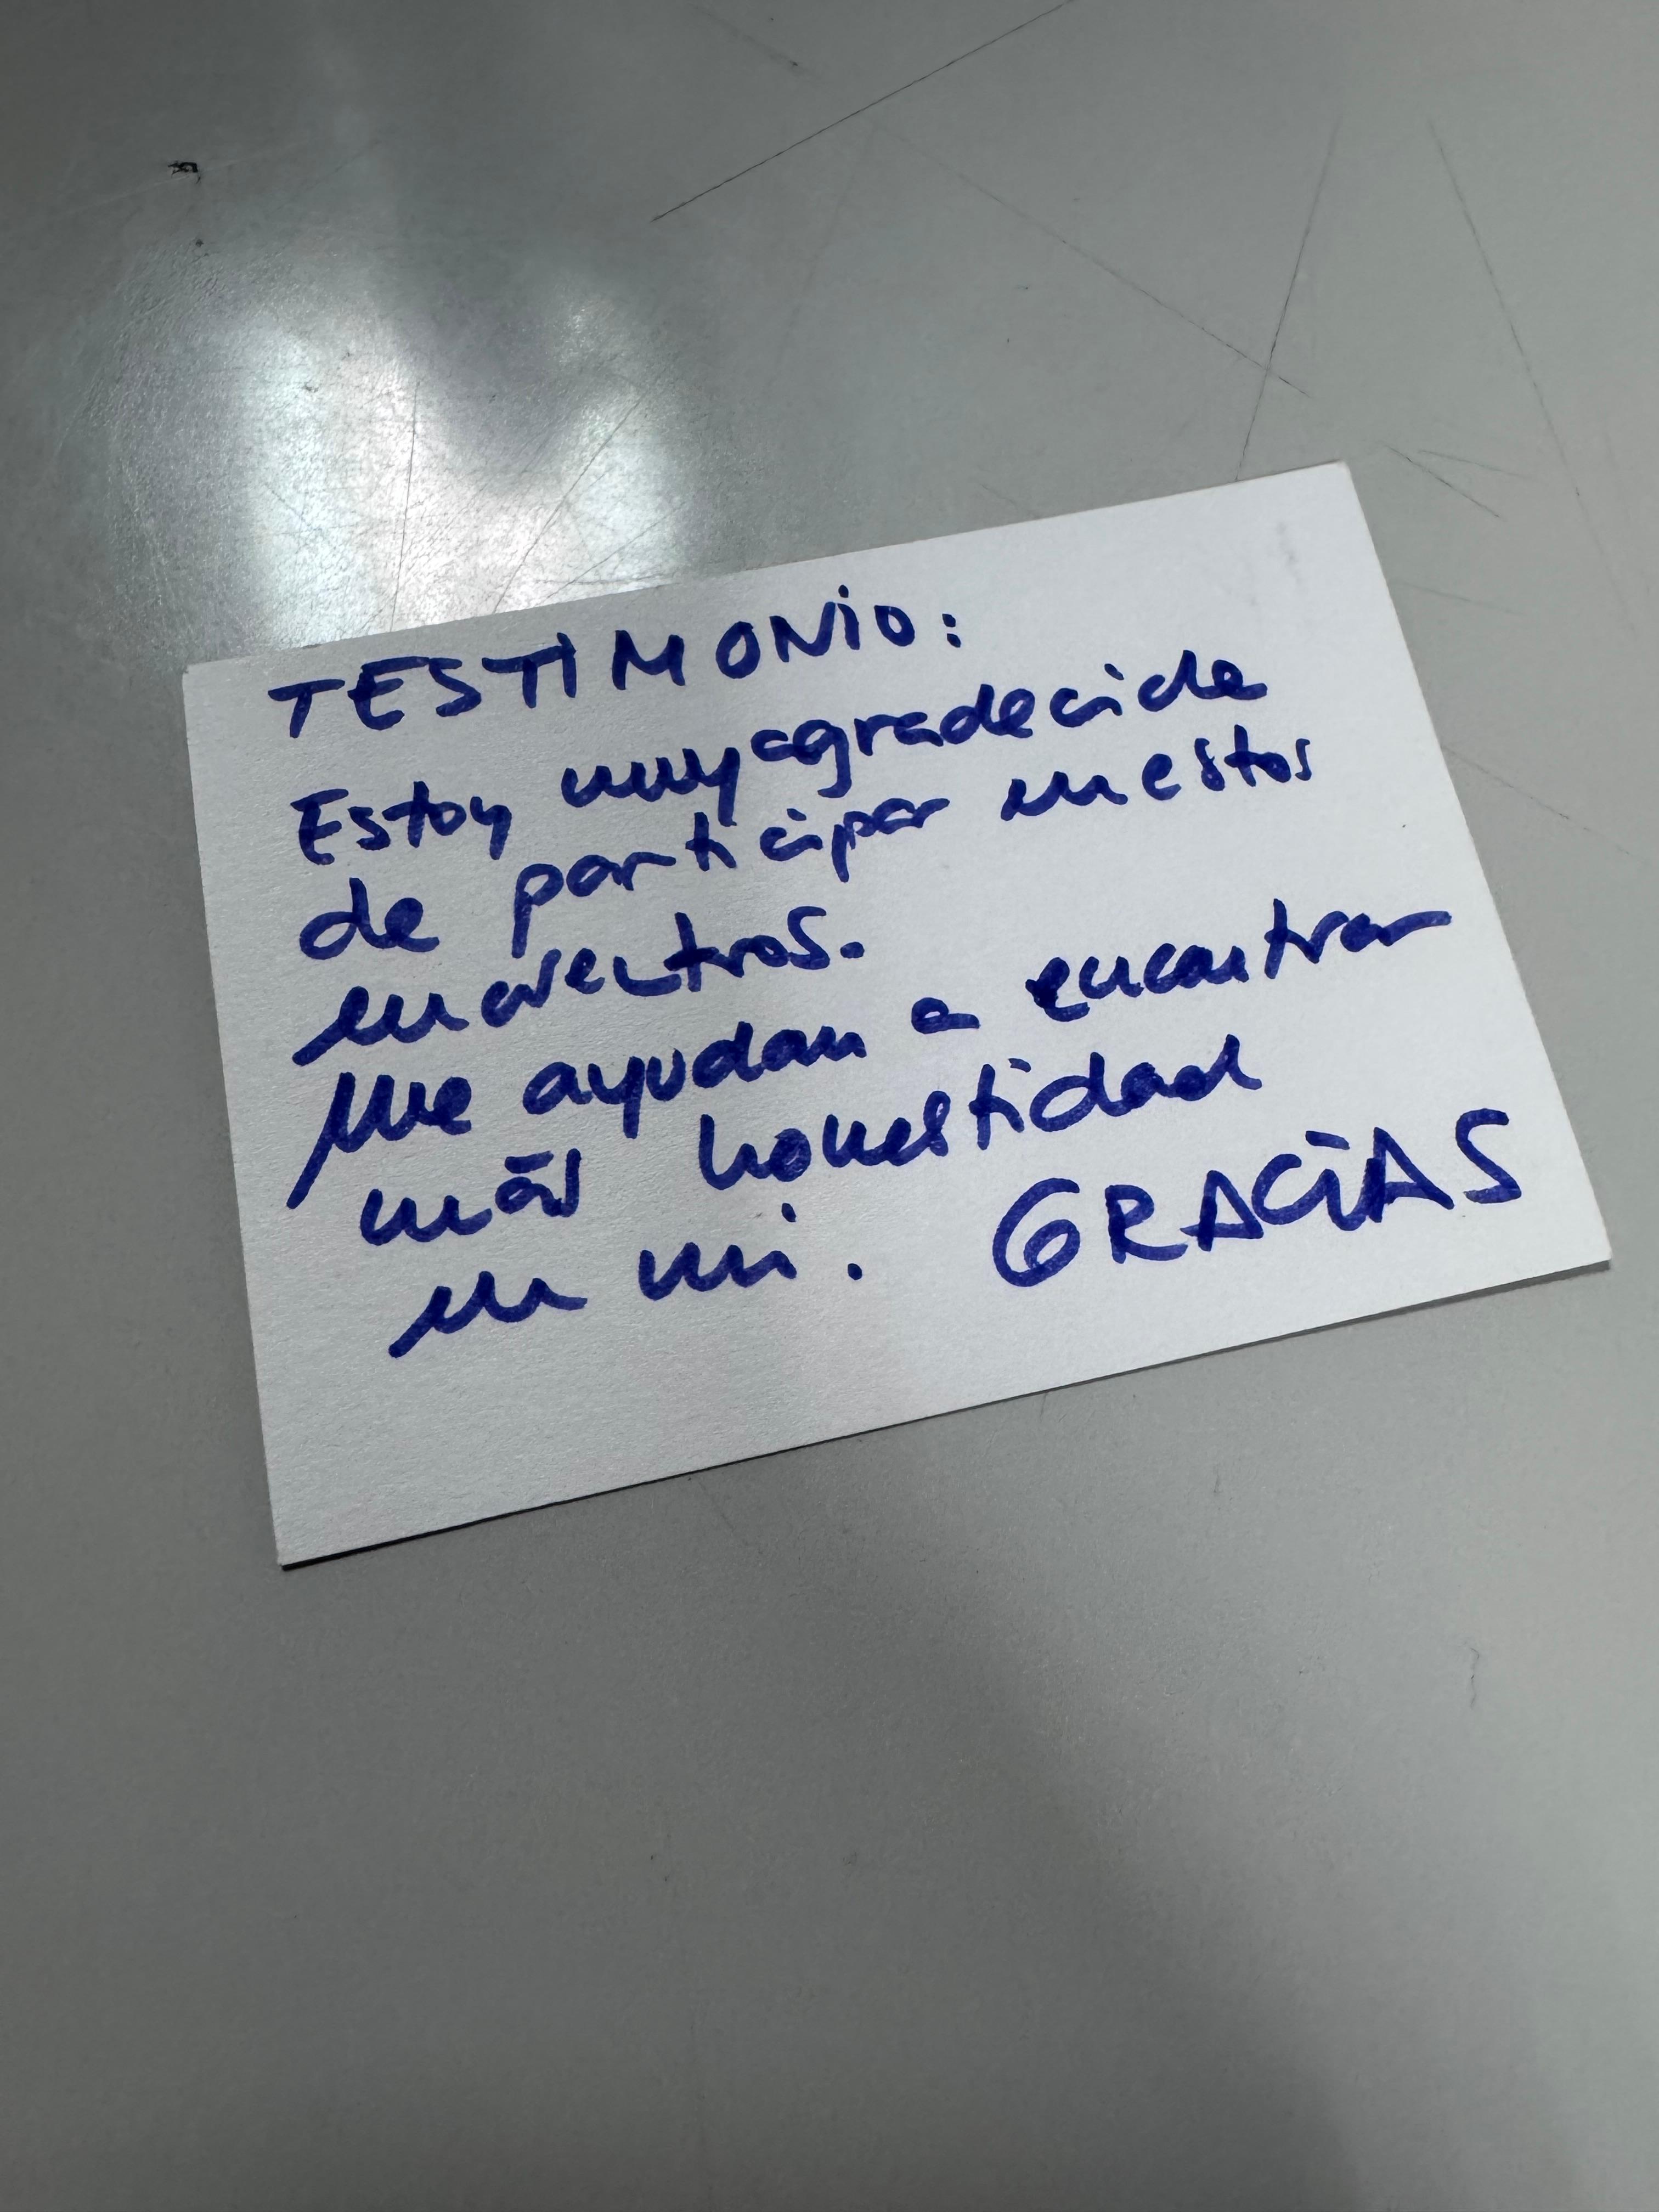 TESTIMONIO:
Estoy muy agradecida
de participar en estos
encuentros.
Me ayudan a encontrar
más honestidad
en mi. GRACIAS